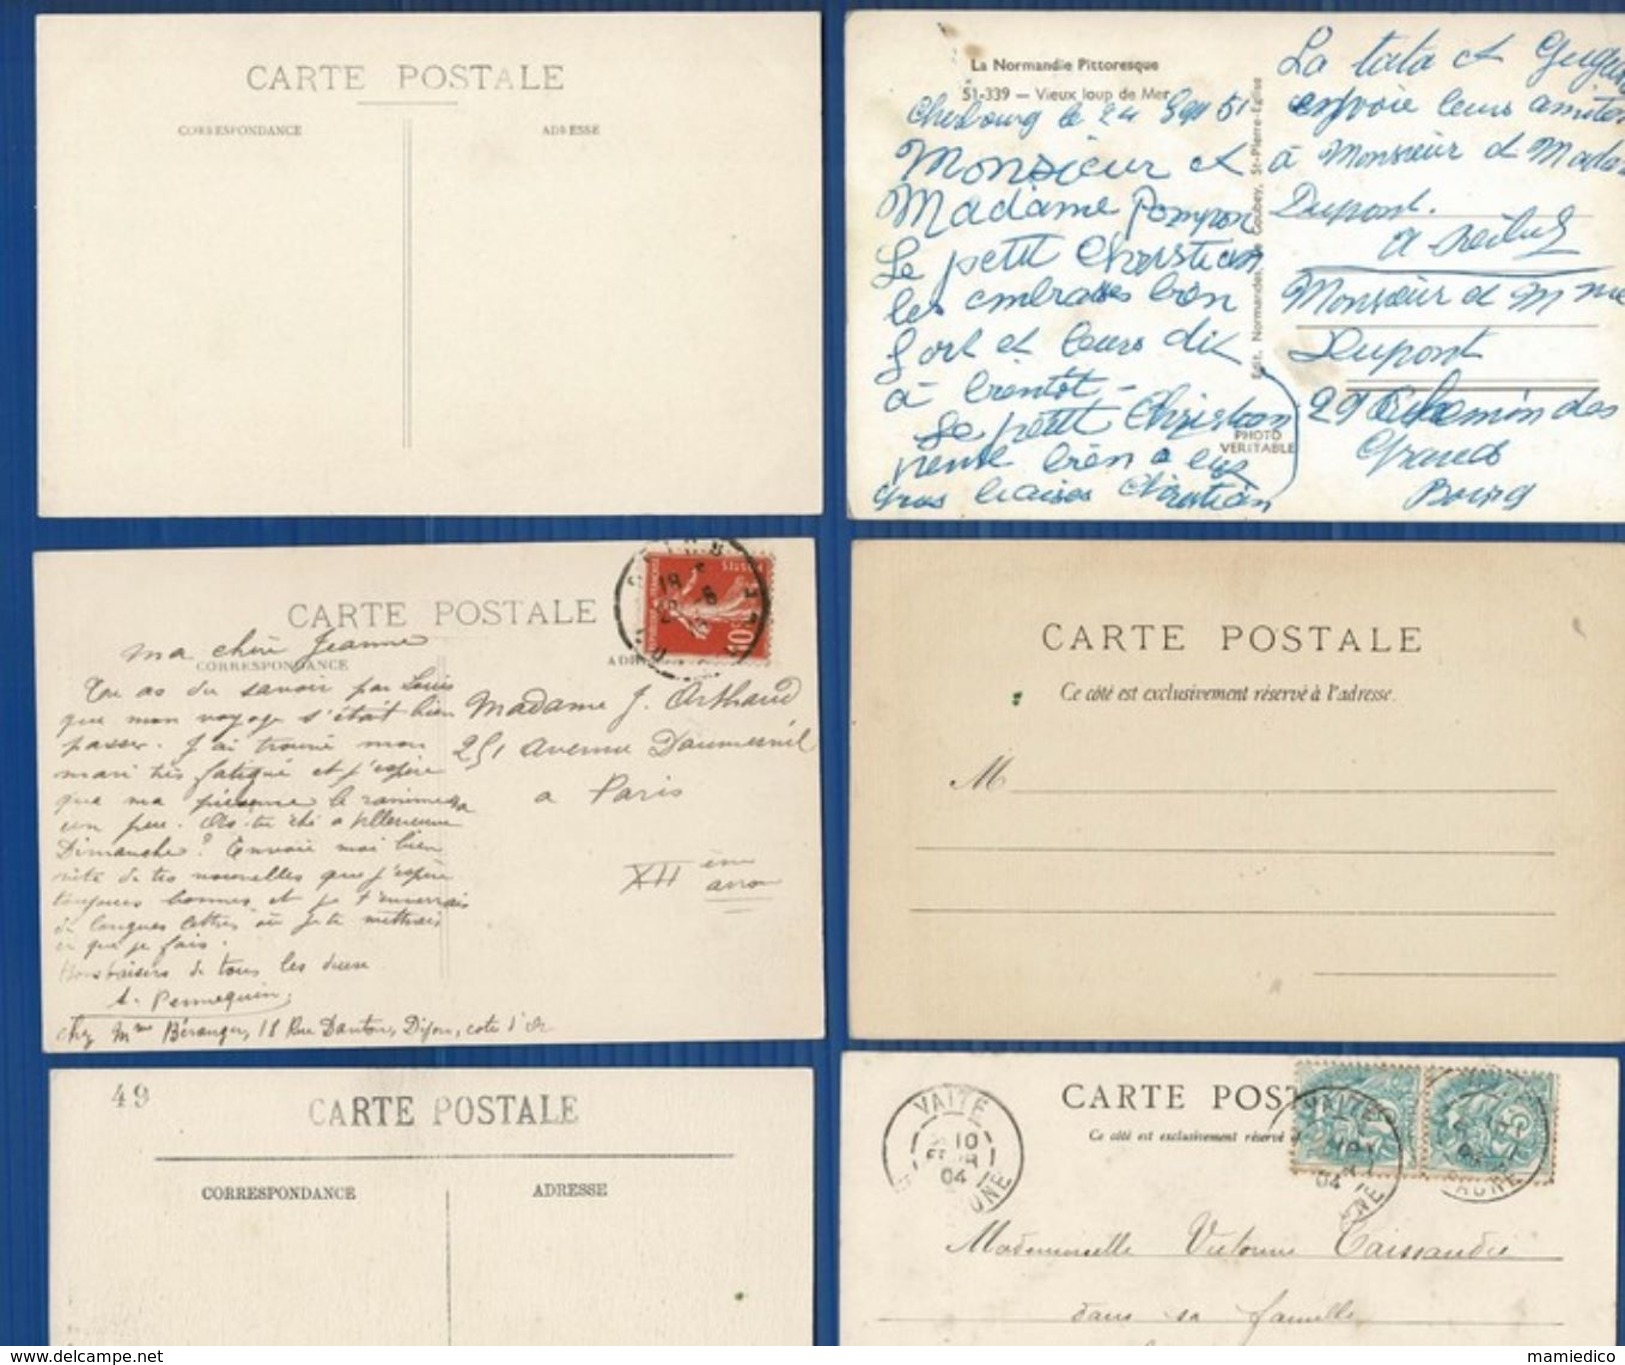 CARTE POSTALE
CORRESPONDANCE
ADRESSE
La Normandie Pittoresque
51-339 — Vieux loup de Mer
Cherbourg le 24 Sep 51
Monsieur et
Madame Pompon
Le petit Christian
les embrasses bien
fort et leurs dit
à bientôt -
Le petit Christian
pense bien a eux
gros baises Christian
Edit. Normandes Goubey, St-Pierre-Eglise
PHOTO
VERITABLE
La tata et
envoie leurs
à Monsieur et
Dupont.
Monsieur et Mme
Dupont
29 chemin des
Grands
Bourg
CARTE POSTALE
CORRESPONDANCE
ma chère Jeanne
Tu as du savoir par Louis
que mon voyage s'était bien
passer. J'ai trouvé mon
mari très fatigué et j'espère
que ma présence le ranimera
un peu. As-tu été a
Dimanche? Envoie moi bien
vite de tes nouvelles que j'espère
toujours bonnes et je t'enverrais
de longues lettres où je te mettrais
ce que je fais.
Bons baisers de tous les deux
A. Pennequin
chez Mme Béranger, 18 Rue Danton, Dijon, cote d'Or
POSTES
10
Madame J. Arthaud
251 avenue Daumesnil
a Paris
XII ème
arron
CARTE POSTALE
Ce côté est exclusivement réservé à l'adresse.
M
49
CARTE POSTALE
CORRESPONDANCE
ADRESSE
VAITE
10
04
CARTE POST
Ce côté est exclusivement réservé à
5
Mademoiselle Victorine
dans sa famille
mamiedico